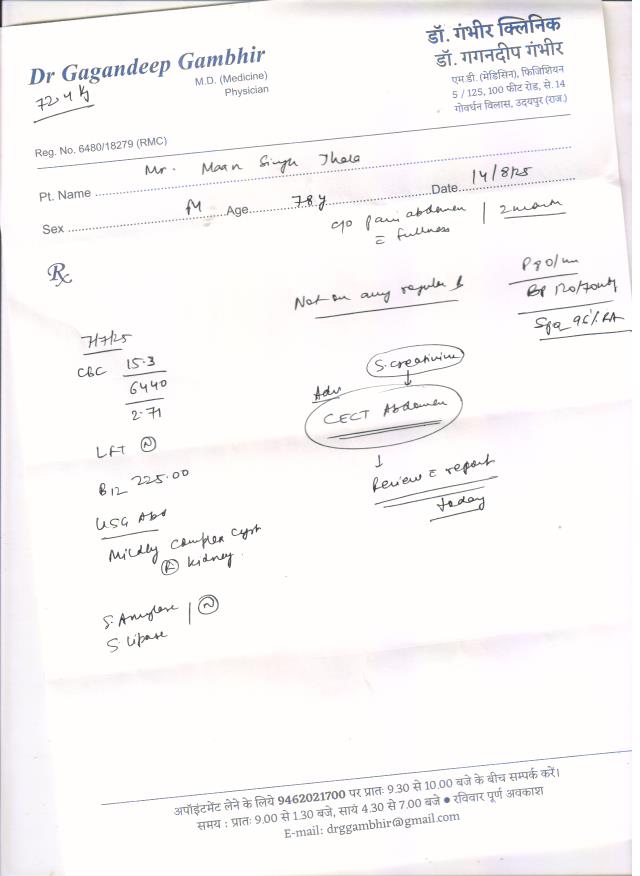 डॉ. गंभीर क्लिनिक
डॉ. गगनदीप गंभीर
एम.डी. (मेडिसिन), फिजिशियन
5 / 125, 100 फीट रोड, से. 14
गोवर्धन विलास, उदयपुर (राज.)
Dr Gagandeep Gambhir
M.D. (Medicine)
Physician
72.4 kg
Reg. No. 6480/18279 (RMC)
Pt. Name Mr. Maan Singh
Sex M Age 78 y Date 14/8/25
c/o pain abdomen
c fullness | 2 month
Rx
Not on any regular
BP 120/70
SpO2 96% RA
7/7/25
CBC 15.3
6440
2.71
LFT (N)
B12 225.00
USG Abd
Mildly complex cyst
(R) kidney.
S. Amylase
S. Lipase | (N)
S. creatinine
Adv
CECT Abdomen
Review c report
today
अपॉइंटमेंट लेने के लिये 9462021700 पर प्रातः 9.30 से 10.00 बजे के बीच सम्पर्क करें।
समय : प्रातः 9.00 से 1.30 बजे, सायं 4.30 से 7.00 बजे ● रविवार पूर्ण अवकाश
E-mail: drggambhir@gmail.com